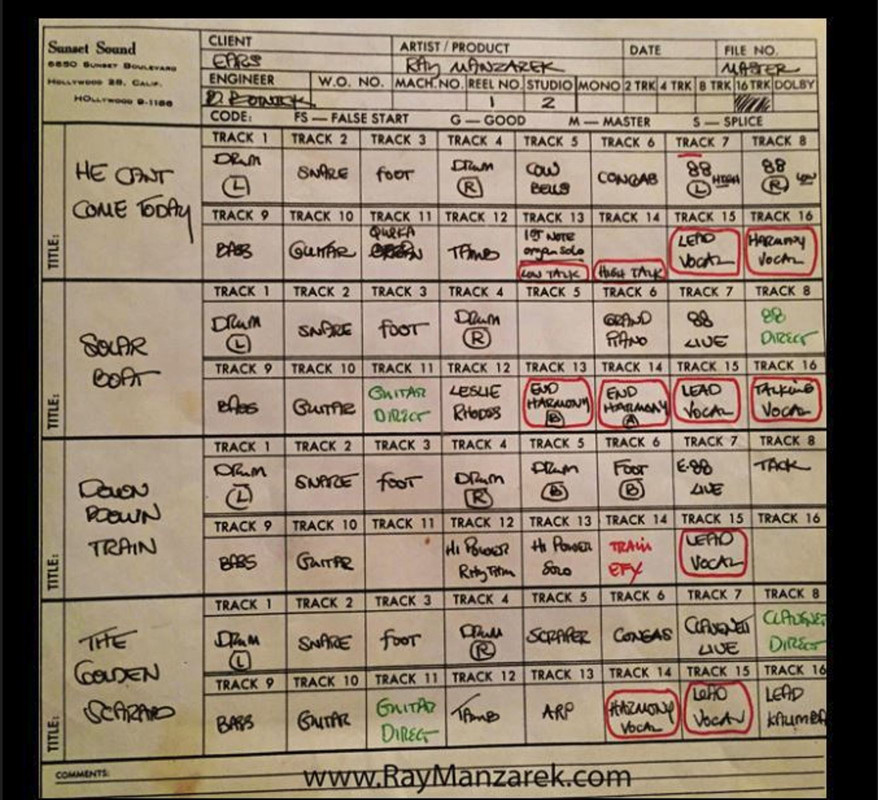 Sunset Sound
6650 Sunset Boulevard
Hollywood 28, Calif.
HOllywood 9-1186
CLIENT
EARS
ARTIST / PRODUCT
RAY MANZAREK
DATE
FILE NO.
MASTER
ENGINEER
B. BOTNICK
W.O. NO.
MACH. NO.
REEL NO.
1
STUDIO
2
MONO
2 TRK
4 TRK
8 TRK
16 TRK
DOLBY
CODE: FS — FALSE START G — GOOD M — MASTER S — SPLICE
TITLE:
HE CANT
COME TODAY
TRACK 1 TRACK 2 TRACK 3 TRACK 4 TRACK 5 TRACK 6 TRACK 7 TRACK 8
DRUM L SNARE FOOT DRUM R COW BELLS CONGAS 88 L HIGH 88 R LOW
TRACK 9 TRACK 10 TRACK 11 TRACK 12 TRACK 13 TRACK 14 TRACK 15 TRACK 16
BASS GUITAR TAMB 1ST NOTE organ solo LOW TALK HIGH TALK LEAD VOCAL HARMONY VOCAL
TITLE:
SOLAR
BOAT
TRACK 1 TRACK 2 TRACK 3 TRACK 4 TRACK 5 TRACK 6 TRACK 7 TRACK 8
DRUM L SNARE FOOT DRUM R GRAND PIANO 88 LIVE 88 DIRECT
TRACK 9 TRACK 10 TRACK 11 TRACK 12 TRACK 13 TRACK 14 TRACK 15 TRACK 16
BASS GUITAR GUITAR DIRECT LESLIE RHODES END HARMONY B END HARMONY A LEAD VOCAL TALKING VOCAL
TITLE:
DOWN
BOUND
TRAIN
TRACK 1 TRACK 2 TRACK 3 TRACK 4 TRACK 5 TRACK 6 TRACK 7 TRACK 8
DRUM L SNARE FOOT DRUM R DRUM B FOOT B E-88 LIVE TACK
TRACK 9 TRACK 10 TRACK 11 TRACK 12 TRACK 13 TRACK 14 TRACK 15 TRACK 16
BASS GUITAR HI POWER RHYTHM HI POWER SOLO TRAIN EFX LEAD VOCAL
TITLE:
THE
GOLDEN
SCARAB
TRACK 1 TRACK 2 TRACK 3 TRACK 4 TRACK 5 TRACK 6 TRACK 7 TRACK 8
DRUM L SNARE FOOT DRUM R SCRAPER CONGAS CLAVENET LIVE CLAVENET DIRECT
TRACK 9 TRACK 10 TRACK 11 TRACK 12 TRACK 13 TRACK 14 TRACK 15 TRACK 16
BASS GUITAR GUITAR DIRECT TAMB ARP HARMONY VOCAL LEAD VOCAL LEAD KALIMBA
COMMENTS:
www.RayManzarek.com